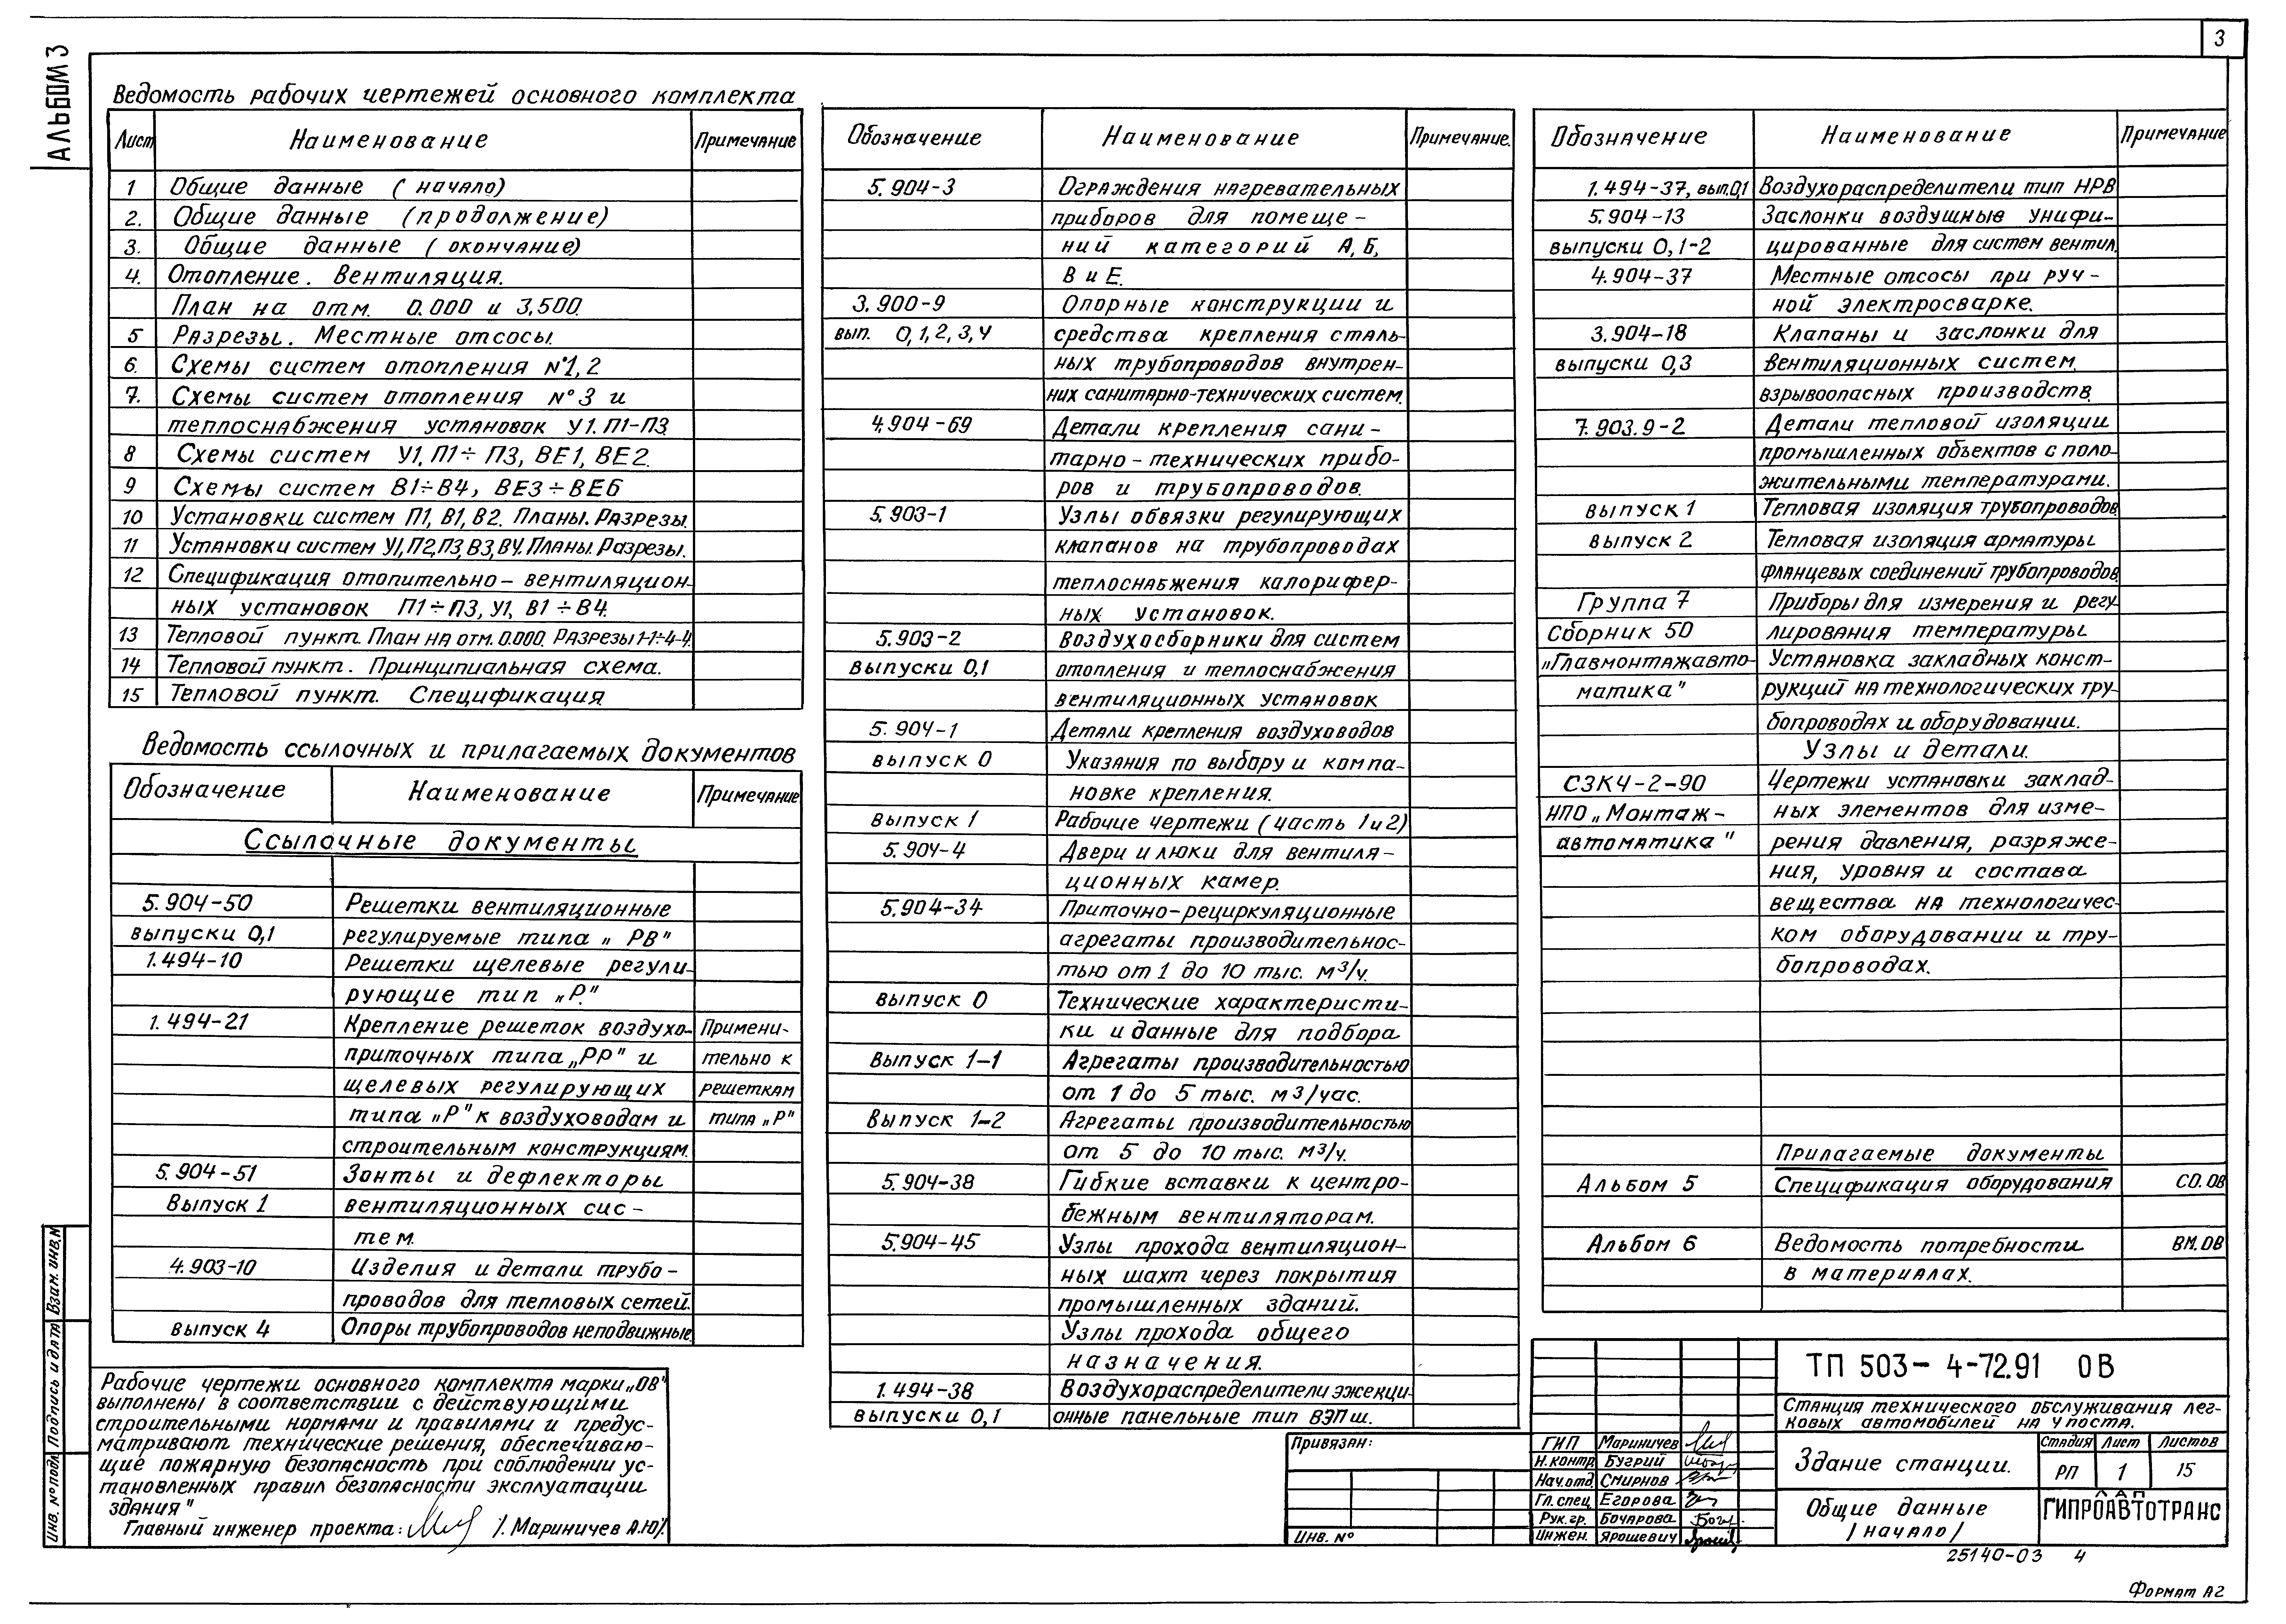 АЛЬБОМ 3
3
Ведомость рабочих чертежей основного комплекта
Лист Наименование Примечание
1 Общие данные (начало)
2. Общие данные (продолжение)
3. Общие данные (окончание)
4. Отопление. Вентиляция.
План на отм. 0.000 и 3,500.
5 Разрезы. Местные отсосы.
6. Схемы систем отопления №1, 2
7. Схемы систем отопления №3 и
теплоснабжения установок У1. П1-П3.
8 Схемы систем У1, П1÷П3, ВЕ1, ВЕ2.
9 Схемы систем В1÷В4, ВЕ3÷ВЕ6
10 Установки систем П1, В1, В2. Планы. Разрезы.
11 Установки систем У1, П2, П3, В3, В4. Планы. Разрезы.
12 Спецификация отопительно-вентиляцион-
ных установок П1÷П3, У1, В1÷В4.
13 Тепловой пункт. План на отм. 0.000. Разрезы 1-1÷4-4.
14 Тепловой пункт. Принципиальная схема.
15 Тепловой пункт. Спецификация.
Ведомость ссылочных и прилагаемых документов
Обозначение Наименование Примечание
Ссылочные документы
5.904-50 Решетки вентиляционные
выпуски 0,1 регулируемые типа „РВ"
1.494-10 Решетки щелевые регули-
рующие тип „Р."
1.494-21 Крепление решеток воздухо- Примени-
приточных типа „РР" и тельно к
щелевых регулирующих решеткам
типа „Р" к воздуховодам и типа „Р"
строительным конструкциям.
5.904-51 Зонты и дефлекторы
Выпуск 1 вентиляционных сис-
тем.
4.903-10 Изделия и детали трубо-
проводов для тепловых сетей.
выпуск 4 Опоры трубопроводов неподвижные.
Рабочие чертежи основного комплекта марки „ОВ"
выполнены в соответствии с действующими
строительными нормами и правилами и предус-
матривают технические решения, обеспечиваю-
щие пожарную безопасность при соблюдении ус-
тановленных правил безопасности эксплуатации
здания"
Главный инженер проекта: /. Мариничев А.Ю./
Обозначение Наименование Примечание.
5.904-3 Ограждения нагревательных
приборов для помеще-
ний категорий А, Б,
В и Е.
3.900-9 Опорные конструкции и
вып. 0, 1, 2, 3, 4 средства крепления сталь-
ных трубопроводов внутрен-
них санитарно-технических систем.
4.904-69 Детали крепления сани-
тарно-технических прибо-
ров и трубопроводов.
5.903-1 Узлы обвязки регулирующих
клапанов на трубопроводах
теплоснабжения калорифер-
ных установок.
5.903-2 Воздухосборники для систем
выпуски 0,1 отопления и теплоснабжения
вентиляционных установок
5.904-1 Детали крепления воздуховодов
выпуск 0 Указания по выбору и компа-
новке крепления.
выпуск 1 Рабочие чертежи (часть 1 и 2)
5.904-4 Двери и люки для вентиля-
ционных камер.
5.904-34 Приточно-рециркуляционные
агрегаты производительнос-
тью от 1 до 10 тыс. м3/ч.
выпуск 0 Технические характеристи-
ки и данные для подбора
Выпуск 1-1 Агрегаты производительностью
от 1 до 5 тыс. м3/час.
Выпуск 1-2 Агрегаты производительностью
от 5 до 10 тыс. м3/ч.
5.904-38 Гибкие вставки к центро-
бежным вентиляторам.
5.904-45 Узлы прохода вентиляцион-
ных шахт через покрытия
промышленных зданий.
Узлы прохода общего
назначения.
1.494-38 Воздухораспределители эжекци-
выпуски 0,1 онные панельные тип ВЭПш.
Обозначение Наименование Примечание
1.494-37, вып.0,1 Воздухораспределители тип НРВ
5.904-13 Заслонки воздушные унифи-
выпуски 0, 1-2 цированные для систем вентил.
4.904-37 Местные отсосы при руч-
ной электросварке.
3.904-18 Клапаны и заслонки для
выпуски 0,3 вентиляционных систем.
взрывоопасных производств.
7.903.9-2 Детали тепловой изоляции
промышленных объектов с поло-
жительными температурами.
выпуск 1 Тепловая изоляция трубопроводов.
выпуск 2 Тепловая изоляция арматуры
фланцевых соединений трубопроводов.
Группа 7 Приборы для измерения и регу-
Сборник 50 лирования температуры
„Главмонтажавто- Установка закладных конст-
матика" рукций на технологических тру-
бопроводах и оборудовании.
Узлы и детали.
СЗК4-2-90 Чертежи установки заклад-
НПО „Монтаж- ных элементов для изме-
автоматика" рения давления, разряже-
ния, уровня и состава
вещества на технологичес-
ком оборудовании и тру-
бопроводах.
Прилагаемые документы
Альбом 5 Спецификация оборудования СО.ОВ
Альбом 6 Ведомость потребности ВМ.ОВ
в материалах.
Привязан:
Инв. №
ГИП Мариничев
Н.контр. Бугрий
Нач.отд. Смирнов
Гл.спец. Егорова
Рук.гр. Бочарова
Инжен. Ярошевич
ТП 503-4-72.91 ОВ
Станция технического обслуживания лег-
ковых автомобилей на 4 поста.
Здание станции.
Стадия Лист Листов
РП 1 15
Общие данные
/начало/
ЛАП
ГИПРОАВТОТРАНС
25140-03 4
Формат А2
Инв. № подл. Подпись и дата Взам. инв. №